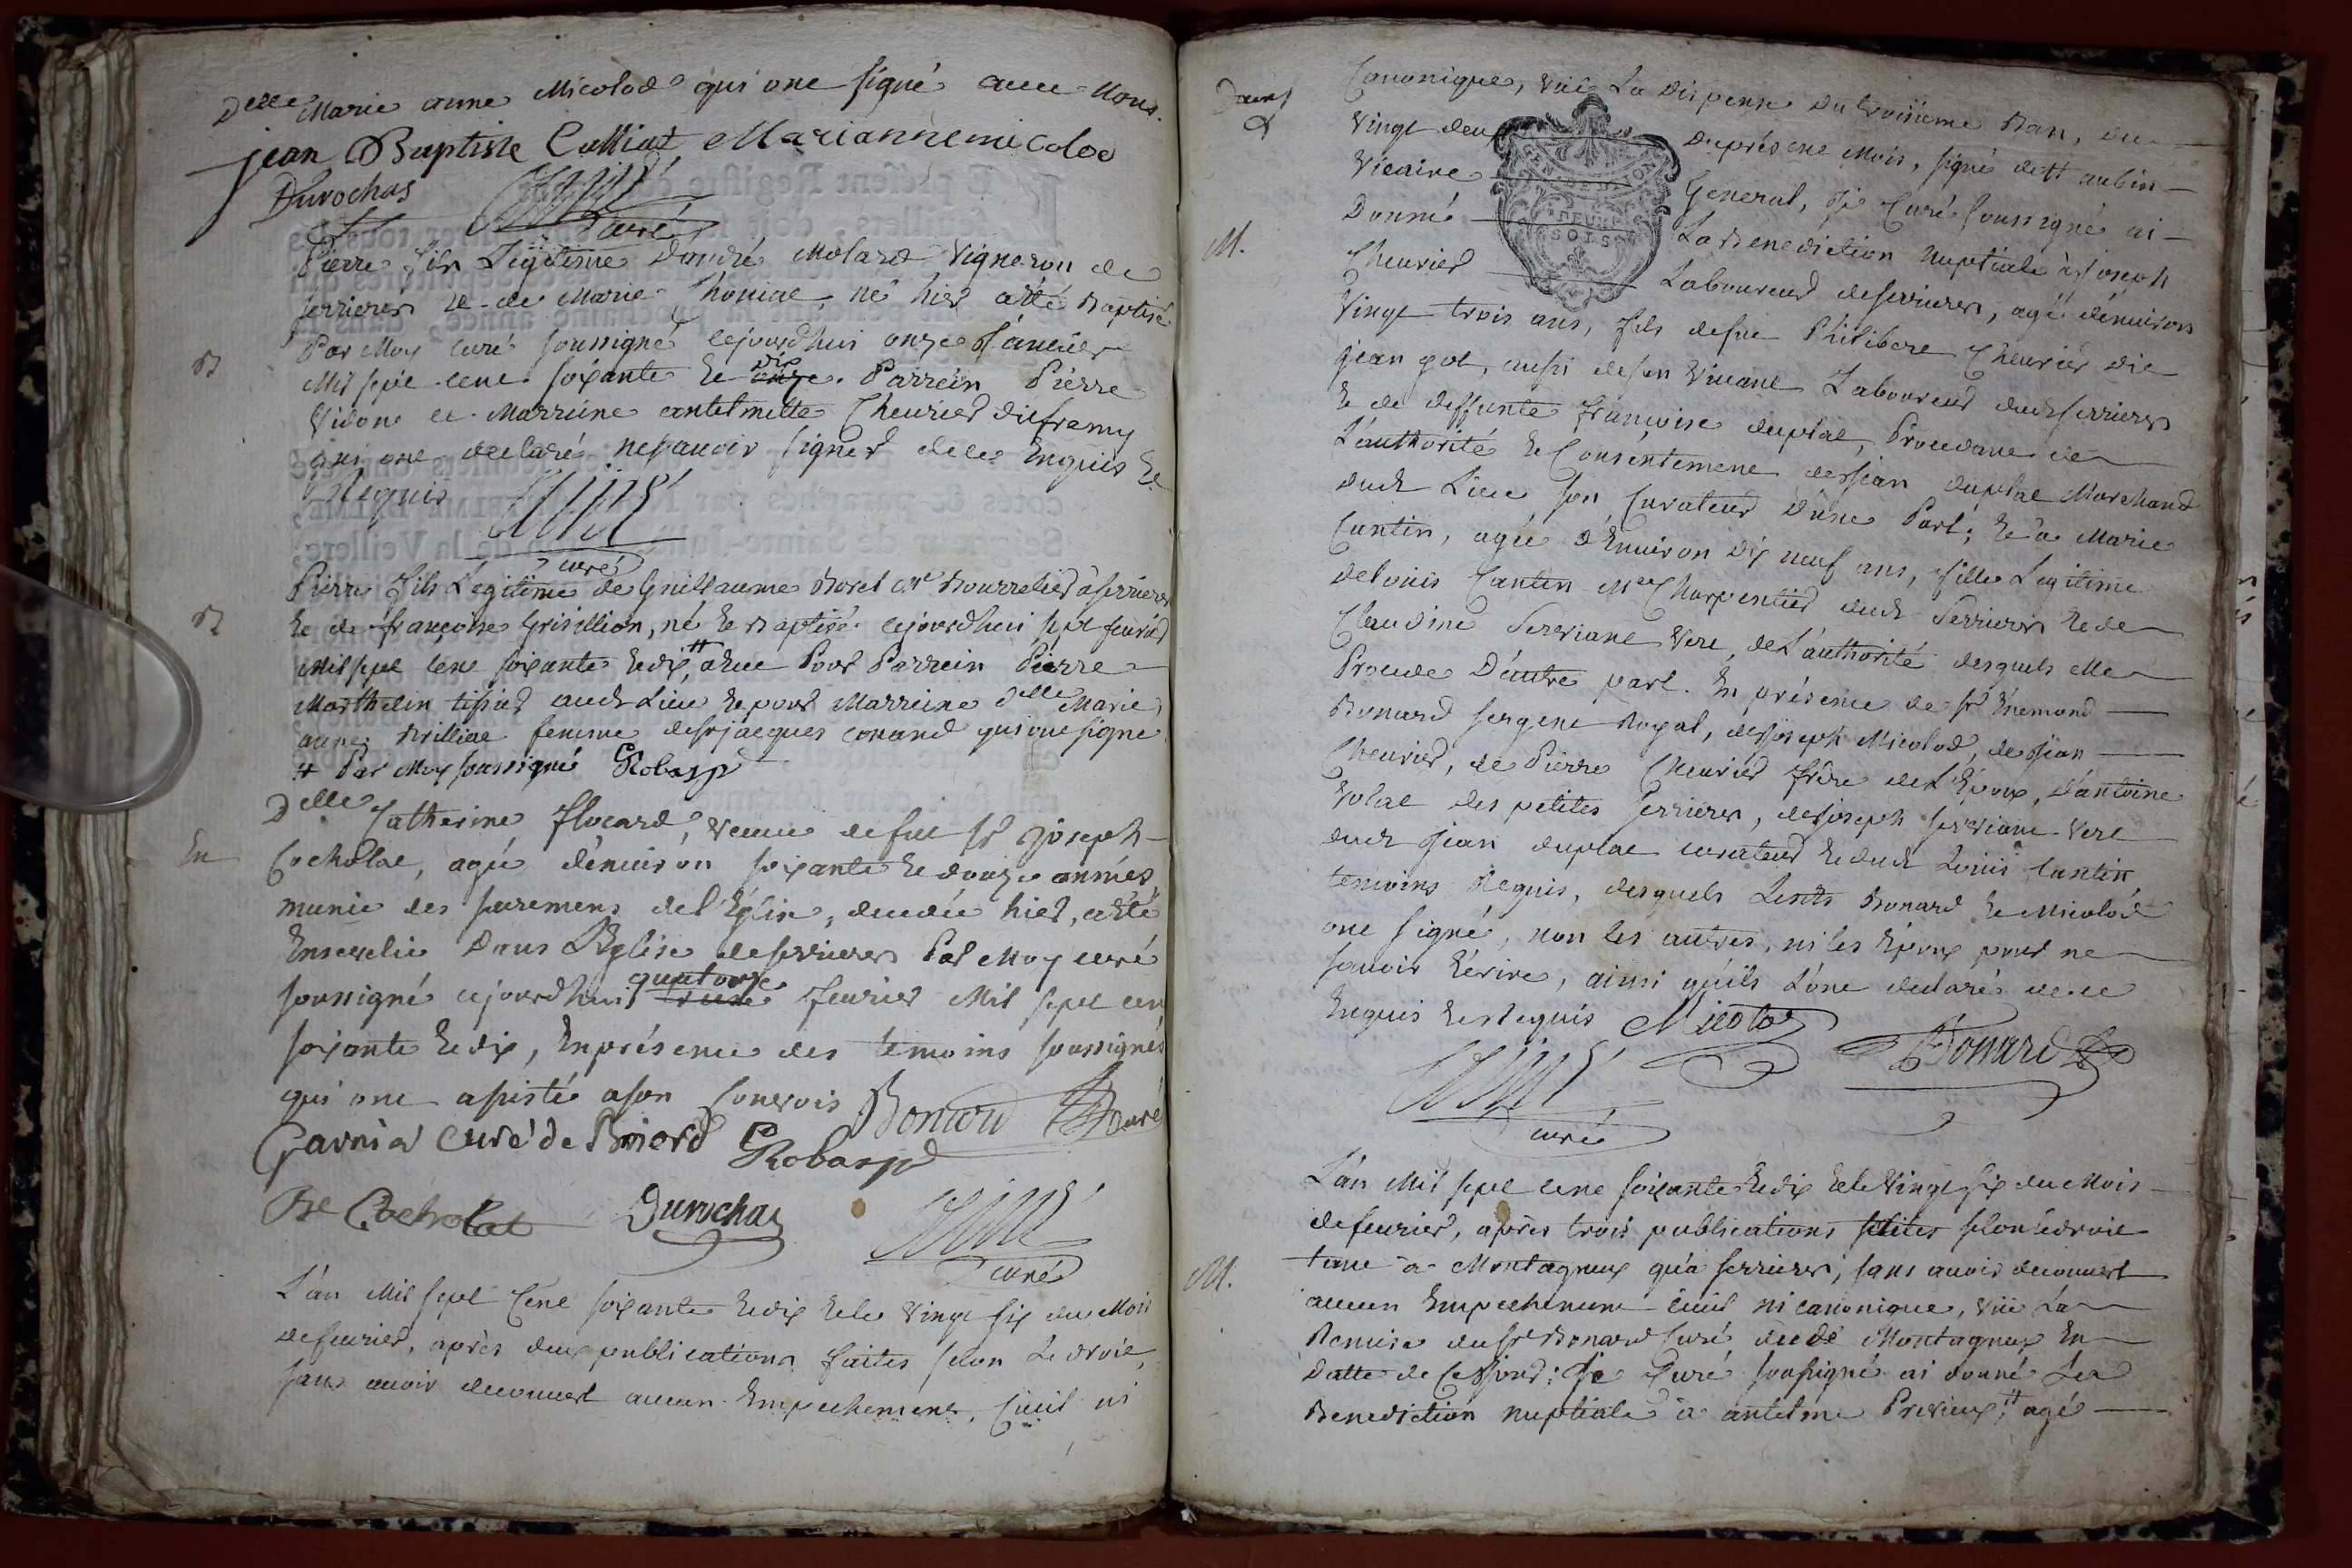 Delle Marie anne Micolod qui ont signé avec Nous.
jean Baptiste Calliat Mariannemicolod
Durochas
curé
Pierre fils Legitime d'andré Molard Vigneron de
serrieres et de Marie né hier a été Baptisé
Par Moy curé soussigné cejourdhui onze
Mil sept cent soixante et dix onze. Parrein Pierre
Vidone et Marreine antelmette Chevrier dit framy
qui ont declaré ne savoir signer de ce Enquis Et
Requis
curé
B
Pierre fils Legitime de Guillaume Borel Me Bourrelier à serrieres
Et de françoise Grisillion, né Et Baptisé cejourdhui sept fevrier
B
Mil sept cent soixante Et dix, # a eu Pour Parrein Pierre
Marthelin tissier dudt Lieu Et pour Marreine Delle Marie
anne Brilliat femme de sr jacques conand qui ont signé
# Par Moy soussigné Robasp
Delle Catherine flocard, veuve de feu sr joseph
En
Cocholat, agée d'environ soixante Et douze années
munie des sacremens de l'Église, decedée hier, a été
Ensevelie Dans L'Eglise de serrieres Par Moy curé
soussigné cejourdhui quatorze fevrier Mil sept cent
soixante Et dix, En présence des témoins soussignés
qui ont assisté a son Convois Bonard
Garnier curé de Briord Robasp
Be Cocholat Durochas
curé
L'an Mil sept Cent soixante Et dix Et le vingt six du Mois
de fevrier, après deux publications faites selon Le droit,
sans avoir decouvert aucun Empechement, Civil ni
Canonique, vüe La Dispense du troisieme Ban, du
Vingt deux du présent Mois, signé de St aubin
Vicaire General, Je Curé soussigné ai
Donné La Benediction nuptiale à joseph
GEN DEUX SOLS
M.
Chevrier Laboureur de serrieres, agé d'environ
Vingt trois ans, fils de feu Philibert Chevrier dit
jean got, aussi de son vivant Laboureur dudt serrieres
Et de deffunte françoise duplat, Procedant de
L'authorité Et Consentement de jean duplat Marchand
dudt Lieu son Curateur d'une Part; Et à Marie
Cantin, agée d'Environ dix neuf ans, fille Legitime
de Louis Cantin Me Charpentier dudt Serrieres Et de
Claudine Serviant Vere, de L'authorité desquels elle
Procede D'autre part. En présence de sr Enemond
Bonard sergent Royal, de joseph Micolod, de jean
Chevrier, de Pierre Chevrier frère de L'Époux, d'antoine
Volat des petites serrieres, de joseph serviant Vere
dudt jean duplat curateur Et dudt Louis Cantin
temoins Requis, desquels Lesdts Bonard Et Micolod
ont signé, non les autres, ni les Époux pour ne
savoir Écrire, ainsi qu'ils L'ont declaré de ce
Enquis Et Requis Micolod Bonard
curé
L'an Mil sept cent soixante Et dix Et le Vingt six du Mois
de fevrier, après trois publications faites selon le droit
M.
tant à Montagneux qu'a serrieres, sans avoir decouvert
aucun Empechement Civil ni canonique, vüe La
Remise du sr Bonard Curé dudt Montagneux En
Datte de Ce jour; Je Curé soussigné ai donné La
Benediction nuptiale à antelme Previeux, # agé